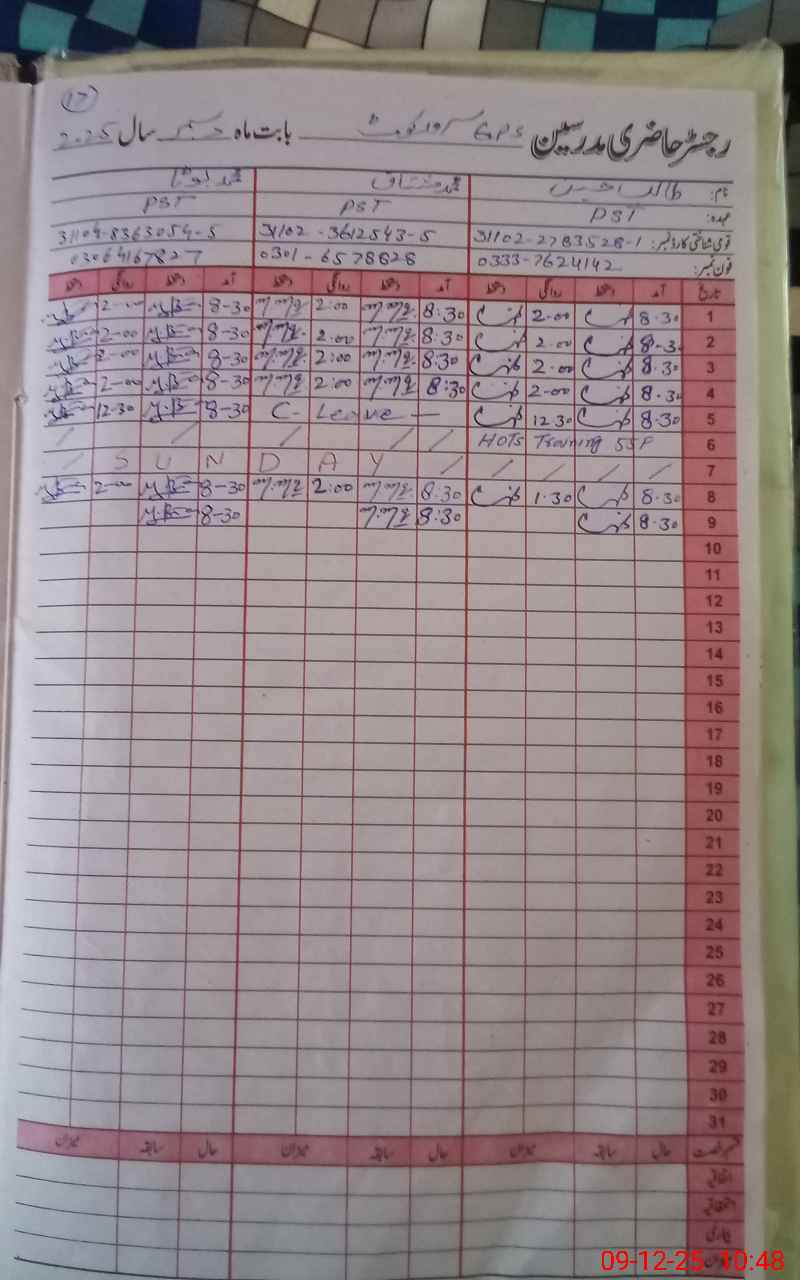 17
رجسٹر حاضری مدرسین GPS بابت ماہ دسمبر سال 2025
نام: طالب حسین محمد مشتاق
عہدہ: PST PST PST
قومی شناختی کارڈ نمبر: 31102-2783528-1 31102-3612543-5 31104-8363054-5
فون نمبر: 0333-7624142 0301-6578828 03064167827
تاریخ آمد دستخط روانگی دستخط آمد دستخط روانگی دستخط آمد دستخط روانگی دستخط
1 8.30 2.00 8.30 2.00 8-30 2-00
2 8-3 2.00 8:30 2.00 8-30 2-00
3 8.30 2.00 8:30 2:00 8-30 2-00
4 8.30 2.00 8:30 2:00 8-30 2-00
5 8.30 12.30 C- Leave — 8-30 12-30
6 HOTs Training SSP / / / / /
7 / / / / / SUNDAY /
8 8.30 1.30 8.30 2:00 8-30 2-00
9 8.30 8:30 8-30
10
11
12
13
14
15
16
17
18
19
20
21
22
23
24
25
26
27
28
29
30
31
حال سابقہ میزان حال سابقہ میزان حال سابقہ میزان
اتفاقیہ
استحقاقیہ
بیماری
میزان
09-12-25 10:48